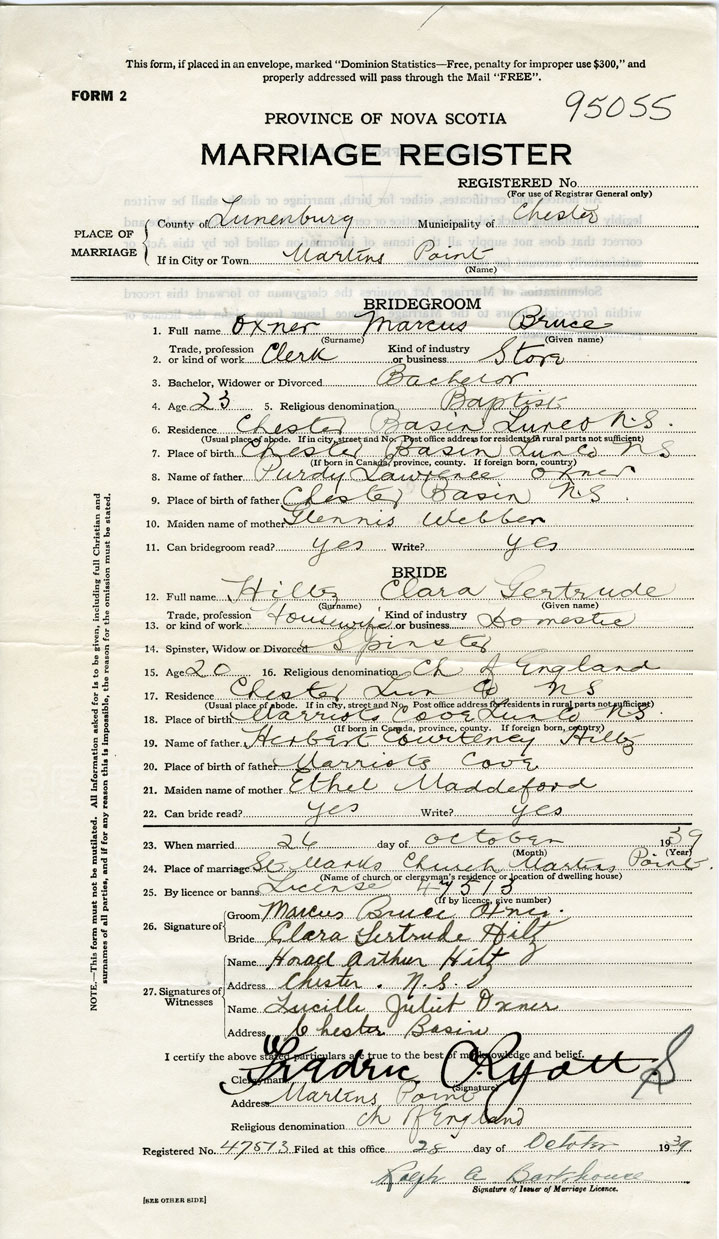 This form, if placed in an envelope, marked "Dominion Statistics—Free, penalty for improper use $300," and
properly addressed will pass through the Mail "FREE".
FORM 2
95055
PROVINCE OF NOVA SCOTIA
MARRIAGE REGISTER
REGISTERED No.
(For use of Registrar General only)
PLACE OF MARRIAGE
County of Lunenburg Municipality of Chester
If in City or Town Martins Point
(Name)
BRIDEGROOM
1. Full name Oxner Marcus Bruce
(Surname) (Given name)
2. Trade, profession or kind of work Clerk Kind of industry or business Store
3. Bachelor, Widower or Divorced Bachelor
4. Age 23 5. Religious denomination Baptist
6. Residence Chester Basin Lun Co N.S.
(Usual place of abode. If in city, street and No. Post office address for residents in rural parts not sufficient)
7. Place of birth Chester Basin Lun Co N S
(If born in Canada, province, county. If foreign born, country)
8. Name of father Purdy Lawrence Oxner
9. Place of birth of father Chester Basin N.S.
10. Maiden name of mother Glennis Webber
11. Can bridegroom read? yes Write? yes
BRIDE
12. Full name Hiltz Clara Gertrude
(Surname) (Given name)
13. Trade, profession or kind of work Housewife Kind of industry or business Domestic
14. Spinster, Widow or Divorced Spinster
15. Age 20 16. Religious denomination Ch of England
17. Residence Chester Lun Co N S
(Usual place of abode. If in city, street and No. Post office address for residents in rural parts not sufficient)
18. Place of birth Marriots Cove Lun Co N.S.
(If born in Canada, province, county. If foreign born, country)
19. Name of father Herbert Courteney Hiltz
20. Place of birth of father Marriots Cove
21. Maiden name of mother Ethel Maddeford
22. Can bride read? yes Write? yes
23. When married 26 day of October 1939
(Month) (Year)
24. Place of marriage St Marks Church Martins Point.
(Name of church or clergyman's residence or location of dwelling house)
25. By licence or banns License 47513
(If by licence, give number)
26. Signature of
Groom Marcus Bruce Oxner.
Bride Clara Gertrude Hiltz
27. Signatures of Witnesses
Name Arthur Hiltz
Address Chester. N.S.
Name Lucille Juliet Oxner
Address Chester Basin
I certify the above stated particulars are true to the best of my knowledge and belief.
Clergyman Fredric
(Signature)
Address Martins Point
Religious denomination Ch of England
Registered No. 47513 Filed at this office 28 day of October 1939
Ralph A Barkhouse
Signature of Issuer of Marriage Licence.
[SEE OTHER SIDE]
NOTE.—This form must not be mutilated. All information asked for is to be given, including full Christian and
surnames of all parties, and if for any reason this is impossible, the reason for the omission must be stated.